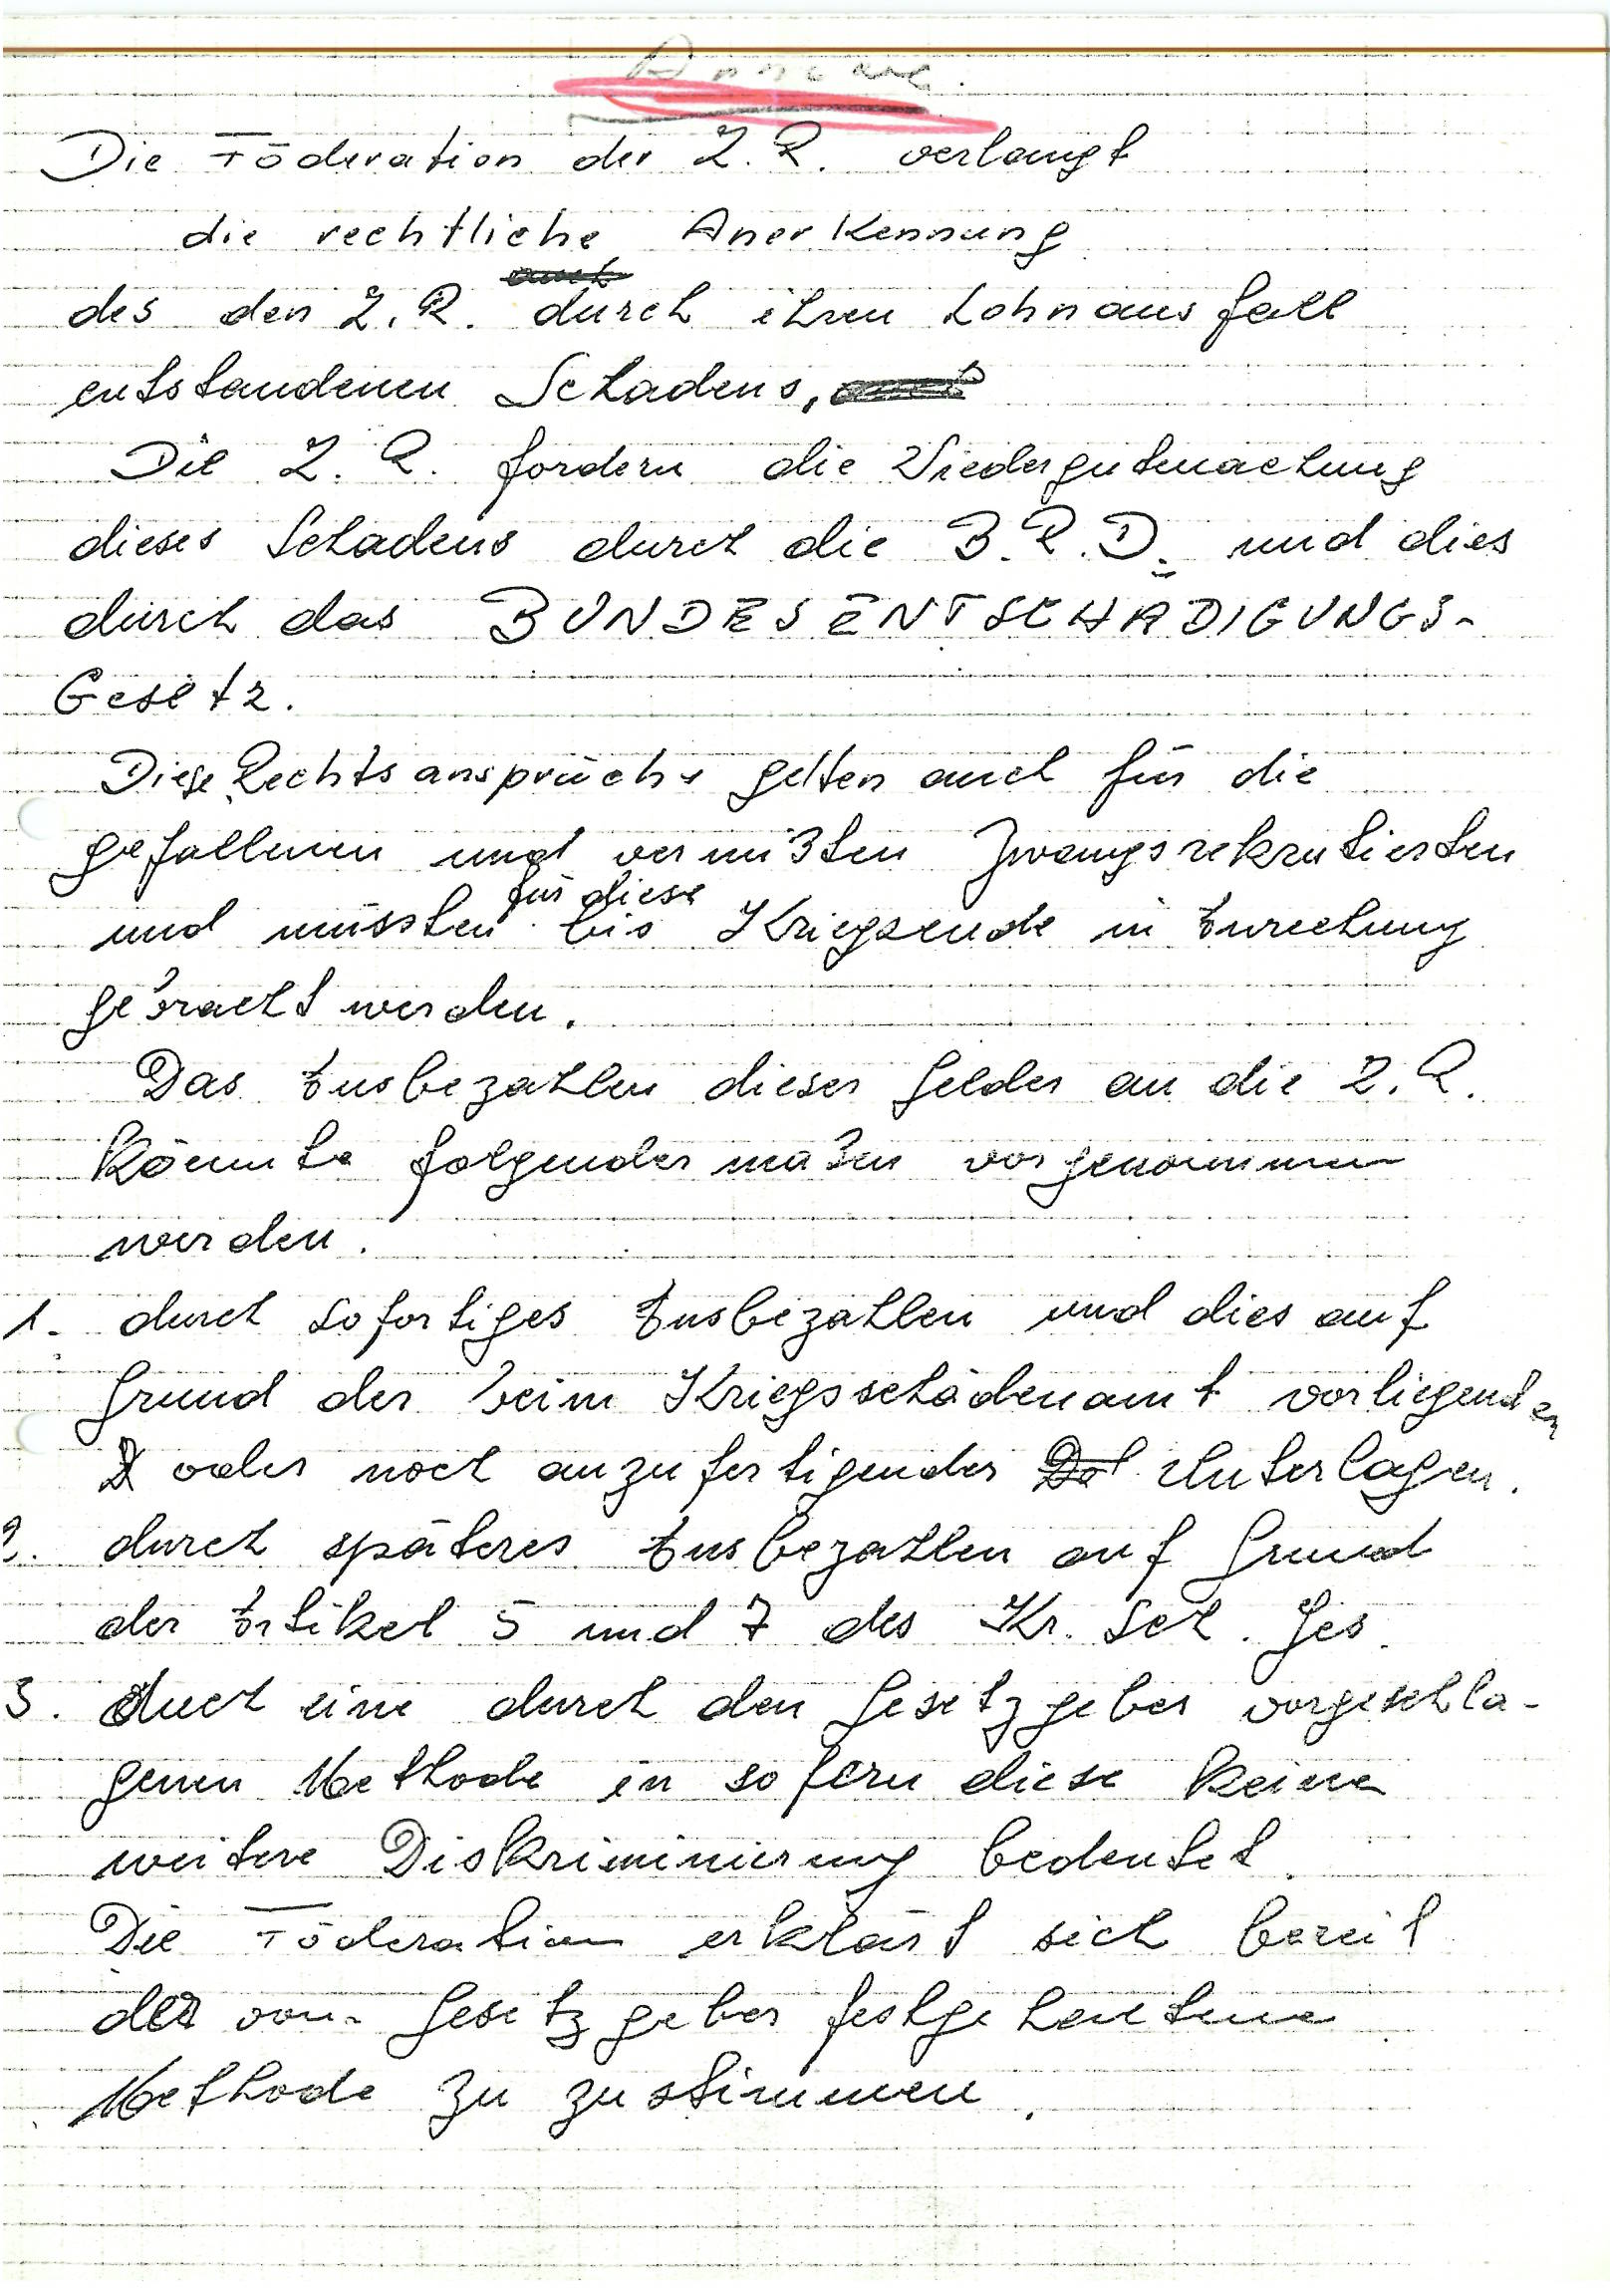 Die Föderation der Z.R. verlangt
die rechtliche Anerkennung
des den Z.R. durch ihren Lohnausfall
entstandenen Schadens,
Die Z.R. fordern die Wiedergutmachung
dieses Schadens durch die B.R.D. und dies
durch das BUNDESENTSCHÄDIGUNGS-
Gesetz.
Diese Rechtsansprüche gelten auch für die
gefallenen und vermißten Zwangsrekrutierten
für diese
und müssten bis Kriegsende in Anrechung
gebracht werden.
Das Ausbezahlen dieser Gelder an die Z.R.
könnte folgendermaßen vorgenommen
werden.
1. durch sofortiges Ausbezahlen und dies auf
Grund der beim Kriegsschädenamt vorliegenden
oder noch anzufertigender Unterlagen.
2. durch späteres Ausbezahlen auf Grund
der Artikel 5 und 7 des Kr. Sch. Ges.
3. duch eine durch den Gesetzgeber vorgeschla-
genen Methode in sofern diese keine
weitere Diskriminierung bedeutet.
Die Föderation erklärt sich bereit
der vom Gesetzgeber festgehaltene
Methode zu zustimmen.